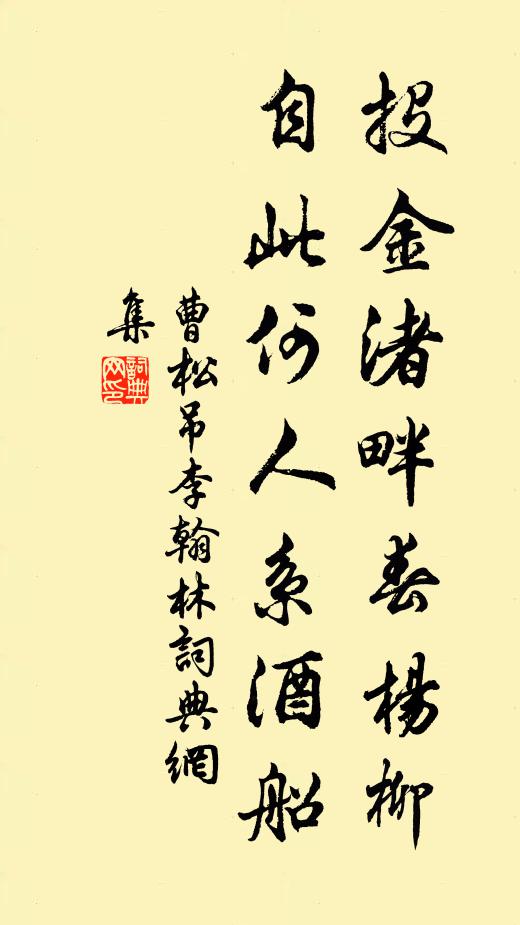 投金渚畔春楊柳
自此何人系酒船
曹松吊李翰林詞典網
集
詞典
网印